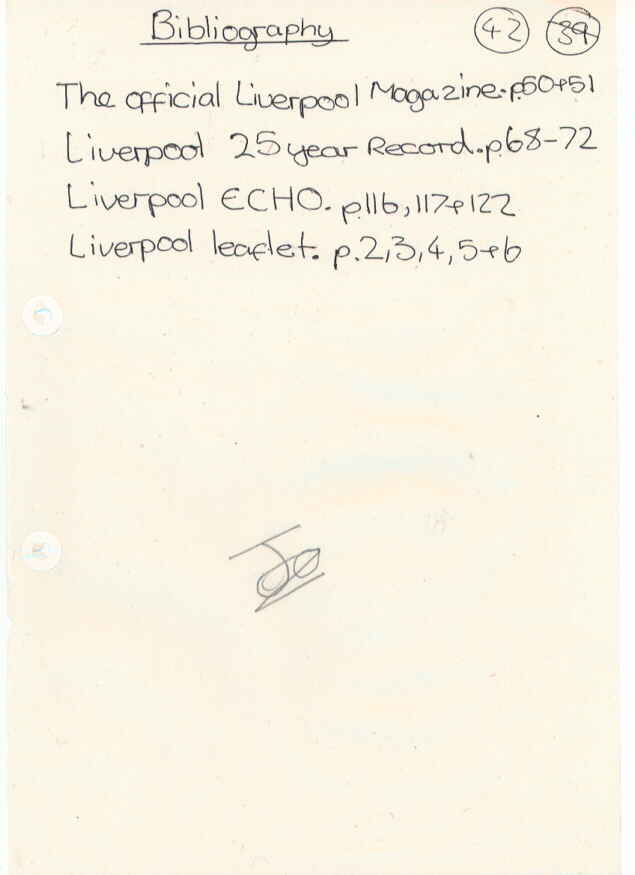 Bibliography 42 39
The official Liverpool Magazine. p50+51
Liverpool 25 year Record. p68-72
Liverpool ECHO. p116, 117+122
Liverpool leaflet. p.2,3,4,5+6
Jo